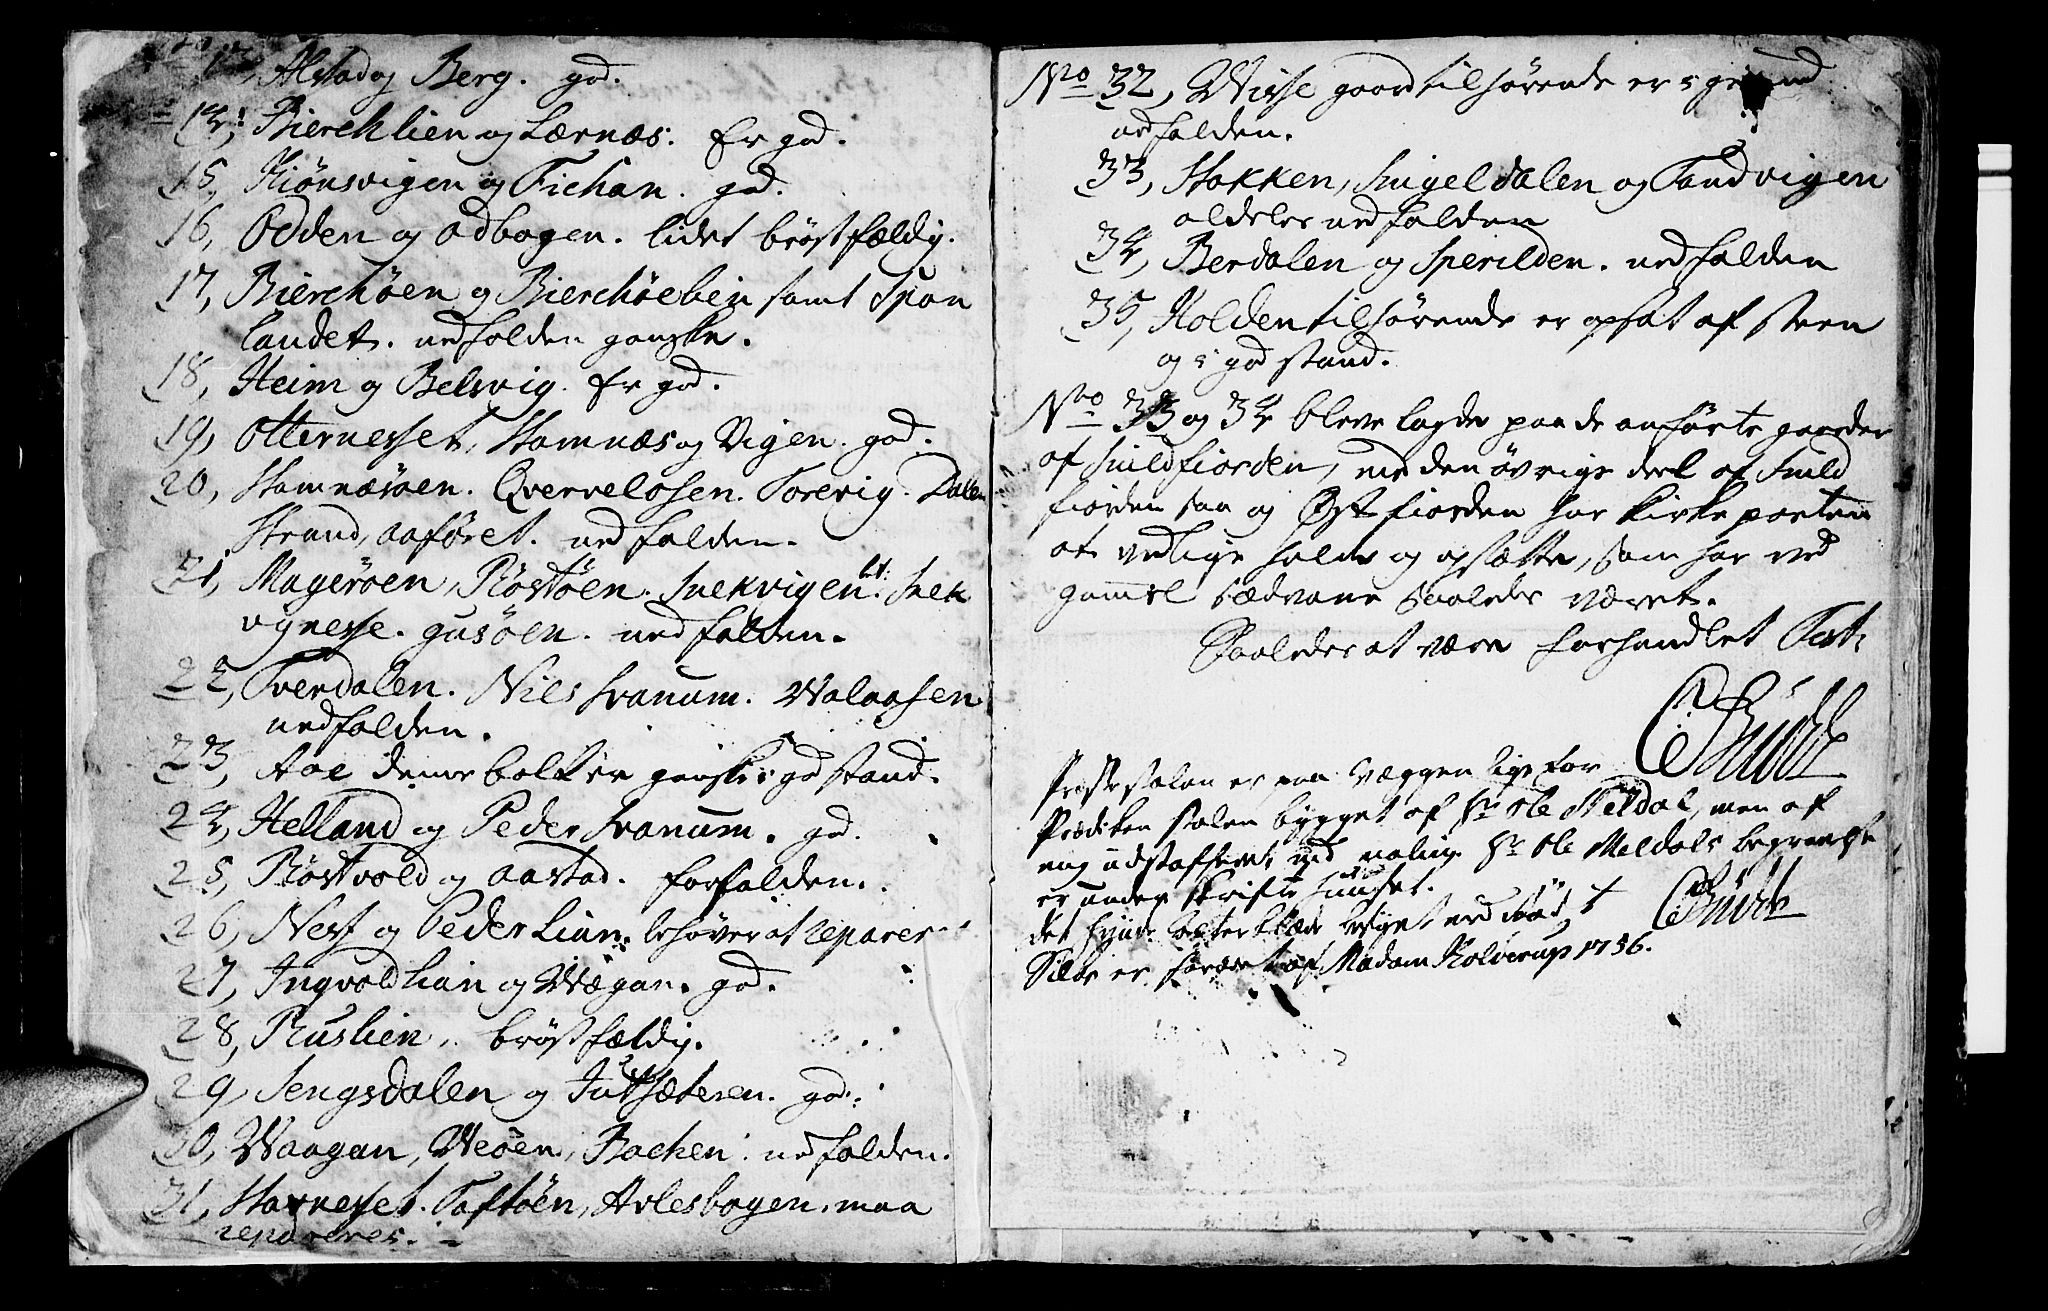 Alstad og Berg. god.
14, Bierchlien og Lærnæs. Er god.
15, Kiønsvigen og Fichan. god.
16, Odden og odbogen. lidet brøstfældig.
17, Bierchøen og Bierchøebein samt Span
landet. nedfalden ganske.
18, Heim og Belsvig. Er god.
19, Otternesset, Stamnæs og Vigen. god.
20, Stamnæsøen. Qvervelosen. Torevig. Dalen
Strand, aaføret. nedfalden.
21, Magerøen, Røstøen. Snekvigen. Snek
vignesse. gusøen. nedfalden.
22, Tverdalen. Niels Svanum. Walaasen
nedfalden.
23, Aae denne bolk er ganske i god stand.
24, Helland og Peder Svanum. god.
25, Røstvold og Aastad. forfalden.
26, Ness og Peder Lian. behøver at reparer
27, Ingvold Lian og Wægan. god.
28, Ruslien. brøstfældig.
29, Sengsdalen og Jutsæteren. god.
30, Waagan, Weøen, Bachen. nedfalden.
31, Stavnesset. Toftøen, Arlesbogen. maa
repareres.
No 32, Wisse gaard tilhørende er
nedfalden.
33, Stokken, Snigeldalen og Sandvigen
aldeles nedfalden
34, Berdalen og Sperilden. nedfalden
35, Holden tilhørende er opsat af Steen
og i god stand.
No 33 og 34 bleve lagde paa de anførte gaarder
af Snildfiorden, men den øvrige deel af Snild
fiorden saa og Østfiorden har Kirke porten
at vedlige holde og opsætte, som har ved
gammel sædvane saaledes været.
Saaledes at være forhandlet Test:
CBudde
stolen er paa væggen lige for
Prædiken stolen bygget af Hr Ole Meldal, men af
mig udstafferet med maling. Hr Ole Meldals begravelse
er under Skrifte huuset.
det Alterklæde besyet med
Sølv er foræret af Madam Kolderup 1756.
CBudde